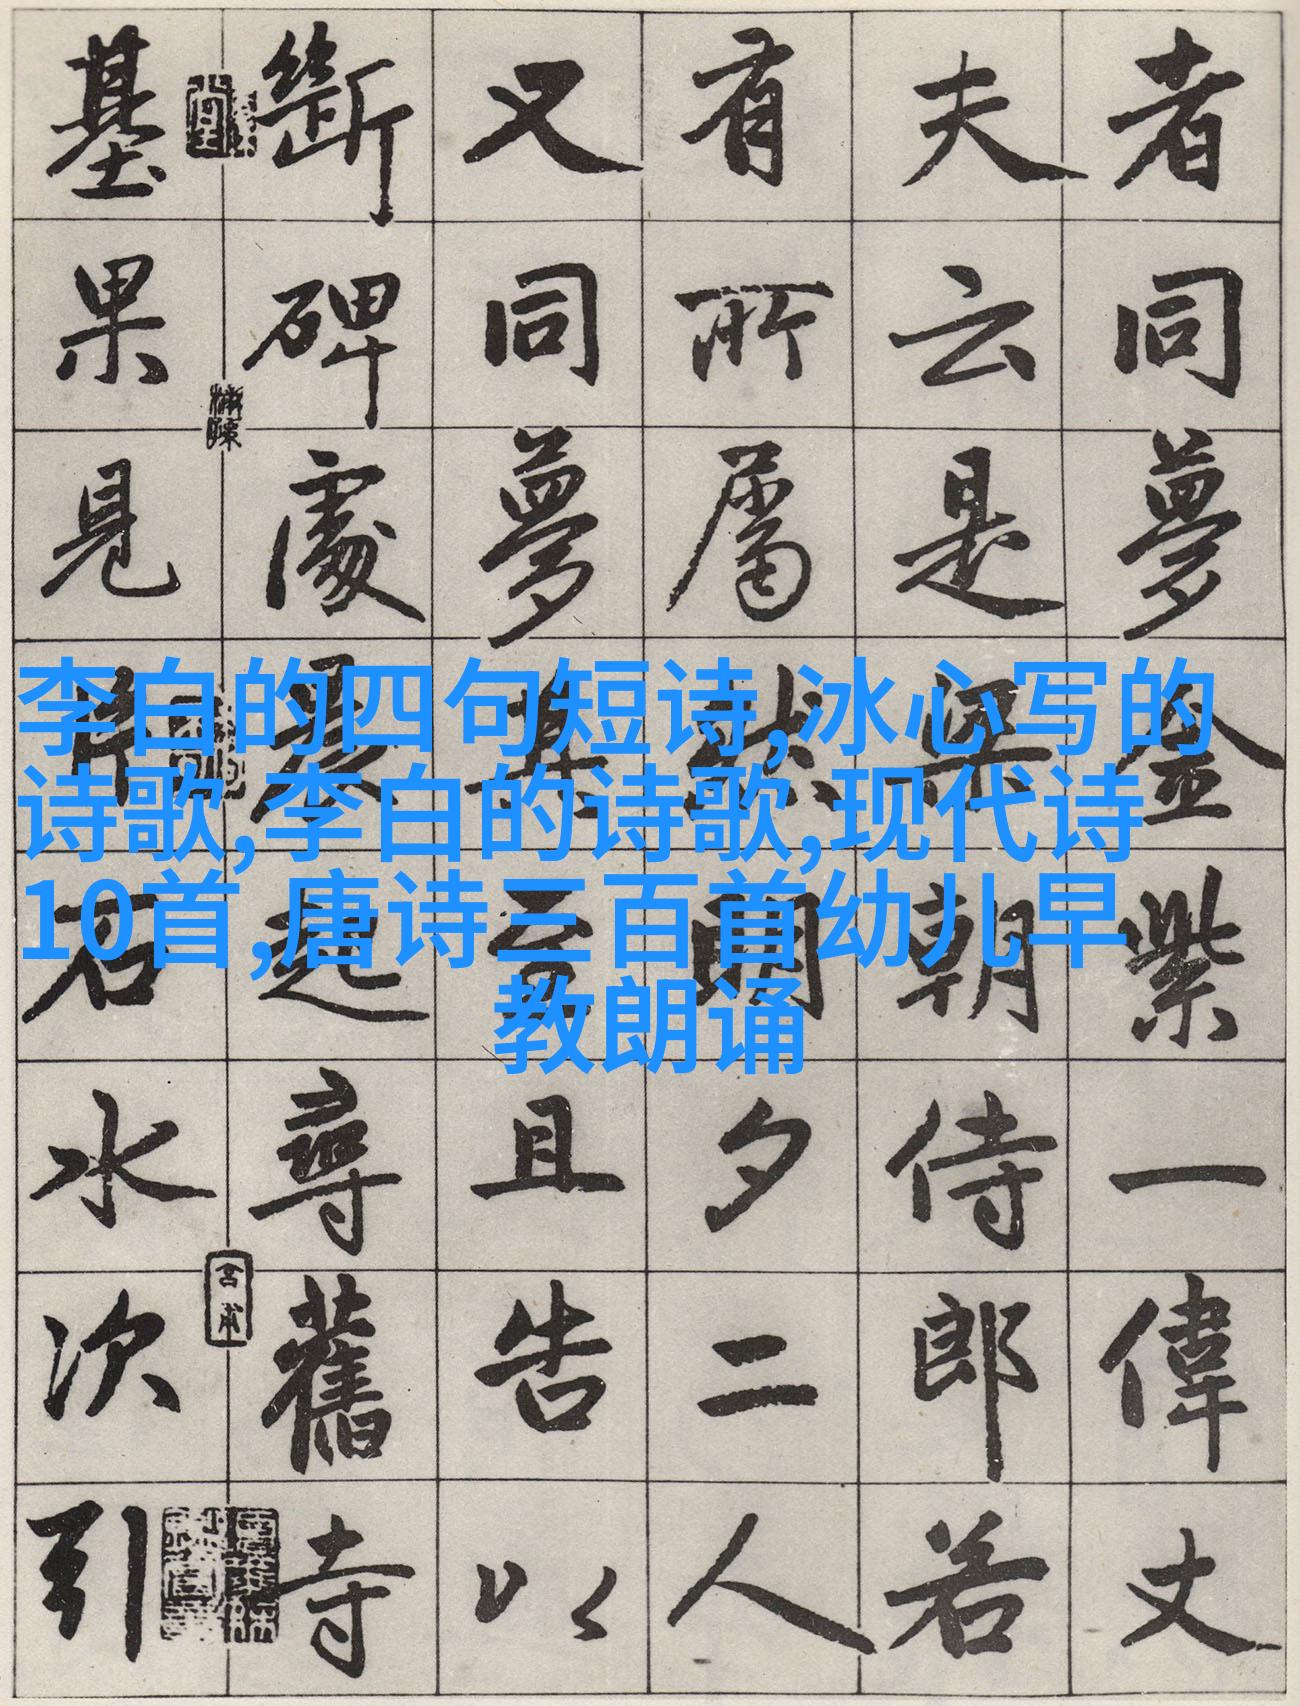 者同夢金紫一偉丈
夫云是梁朝侍郎若
有所屬獻明夕二人
又同夢其言且告以
斷碑處晨起尋舊寺
基果見片石水次引
李白的四句短诗,冰心写的
诗歌,李白的诗歌,现代诗
10首,唐诗三百首幼儿早
教朗诵